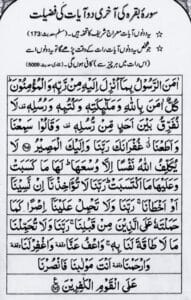 سورۃ بقرہ کی آخری دو آیات کی فضیلت
یہ دونوں آیات معراج شریف کا تحفہ ہیں۔ (مسلم حدیث: 173)
جو شخص یہ دونوں آیات رات کے وقت پڑھے گا یہ دونوں اسے
(اس رات میں ہر چیز سے) کافی ہوں گی۔
اٰمَنَ الرَّسُوْلُ بِمَاۤ اُنْزِلَ اِلَیْهِ مِنْ رَّبِّهٖ وَ الْمُؤْمِنُوْنَ ؕ
كُلٌّ اٰمَنَ بِاللّٰهِ وَ مَلٰٓىِٕكَتِهٖ وَ كُتُبِهٖ وَ رُسُلِهٖ ۫ لَا
نُفَرِّقُ بَیْنَ اَحَدٍ مِّنْ رُّسُلِهٖ ۫ وَ قَالُوْا سَمِعْنَا
وَ اَطَعْنَا ٘ غُفْرَانَكَ رَبَّنَا وَ اِلَیْكَ الْمَصِیْرُ لَا
یُكَلِّفُ اللّٰهُ نَفْسًا اِلَّا وُسْعَهَا ؕ لَهَا مَا كَسَبَتْ
وَ عَلَیْهَا مَا اكْتَسَبَتْ ؕ رَبَّنَا لَا تُؤَاخِذْنَاۤ اِنْ نَّسِیْنَاۤ
اَوْ اَخْطَاْنَا ۚ رَبَّنَا وَ لَا تَحْمِلْ عَلَیْنَاۤ اِصْرًا كَمَا
حَمَلْتَهٗ عَلَى الَّذِیْنَ مِنْ قَبْلِنَا ۚ رَبَّنَا وَ لَا تُحَمِّلْنَا
مَا لَا طَاقَةَ لَنَا بِهٖ ۚ وَ اعْفُ عَنَّا ٙ وَ اغْفِرْ لَنَا ٙ
وَ ارْحَمْنَا ٙ اَنْتَ مَوْلٰىنَا فَانْصُرْنَا
عَلَى الْقَوْمِ الْكٰفِرِیْنَ